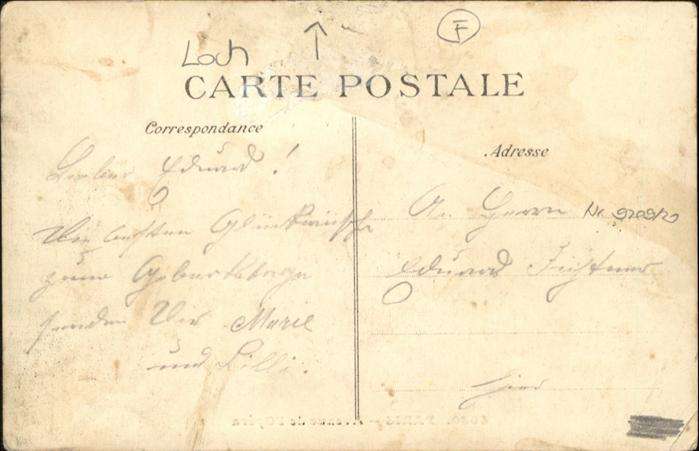 F
Loch
CARTE POSTALE
Correspondance
Adresse
Lieber Eduard!
Die besten Glückwünsche
zum Geburtstage
senden Dir Marie
und Lilli.
An Herrn
Eduard
hier